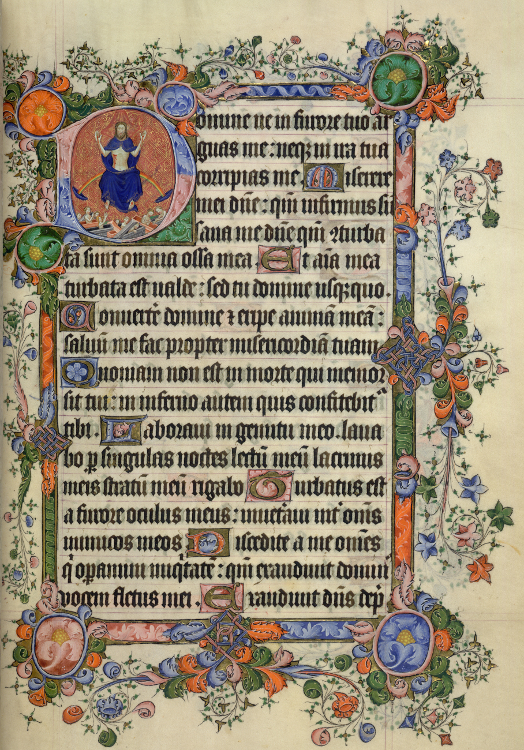 Domine ne in furore tuo ar
guas me: neq; in ira tua
corripias me. Miserere
mei dñe: qm̃ infirmus sũ
sana me dñe qm̃ ꝯturba
ta sunt omnia ossa mea. Et aĩa mea
turbata est ualde: sed tu domine usq; quo.
Conuerte domine ⁊ eripe animam meã:
saluũ me fac propter misericordiã tuam.
Quoniam non est in morte qui memor
sit tui: in inferno autem quis confitebit᷑
tibi. Laboraui in gemitu meo. laua
bo ꝑ singulas noctes lectũ meũ lacrimis
meis stratũ meũ rigabo. Turbatus est
a furore oculus meus: inueteraui int̃ om̃s
inimicos meos. Discedite a me om̃es
qⁱ oꝑamini iniq̃tatem: qm̃ exaudiuit dominꝰ
vocem fletus mei. Exaudiuit dñs dep̃